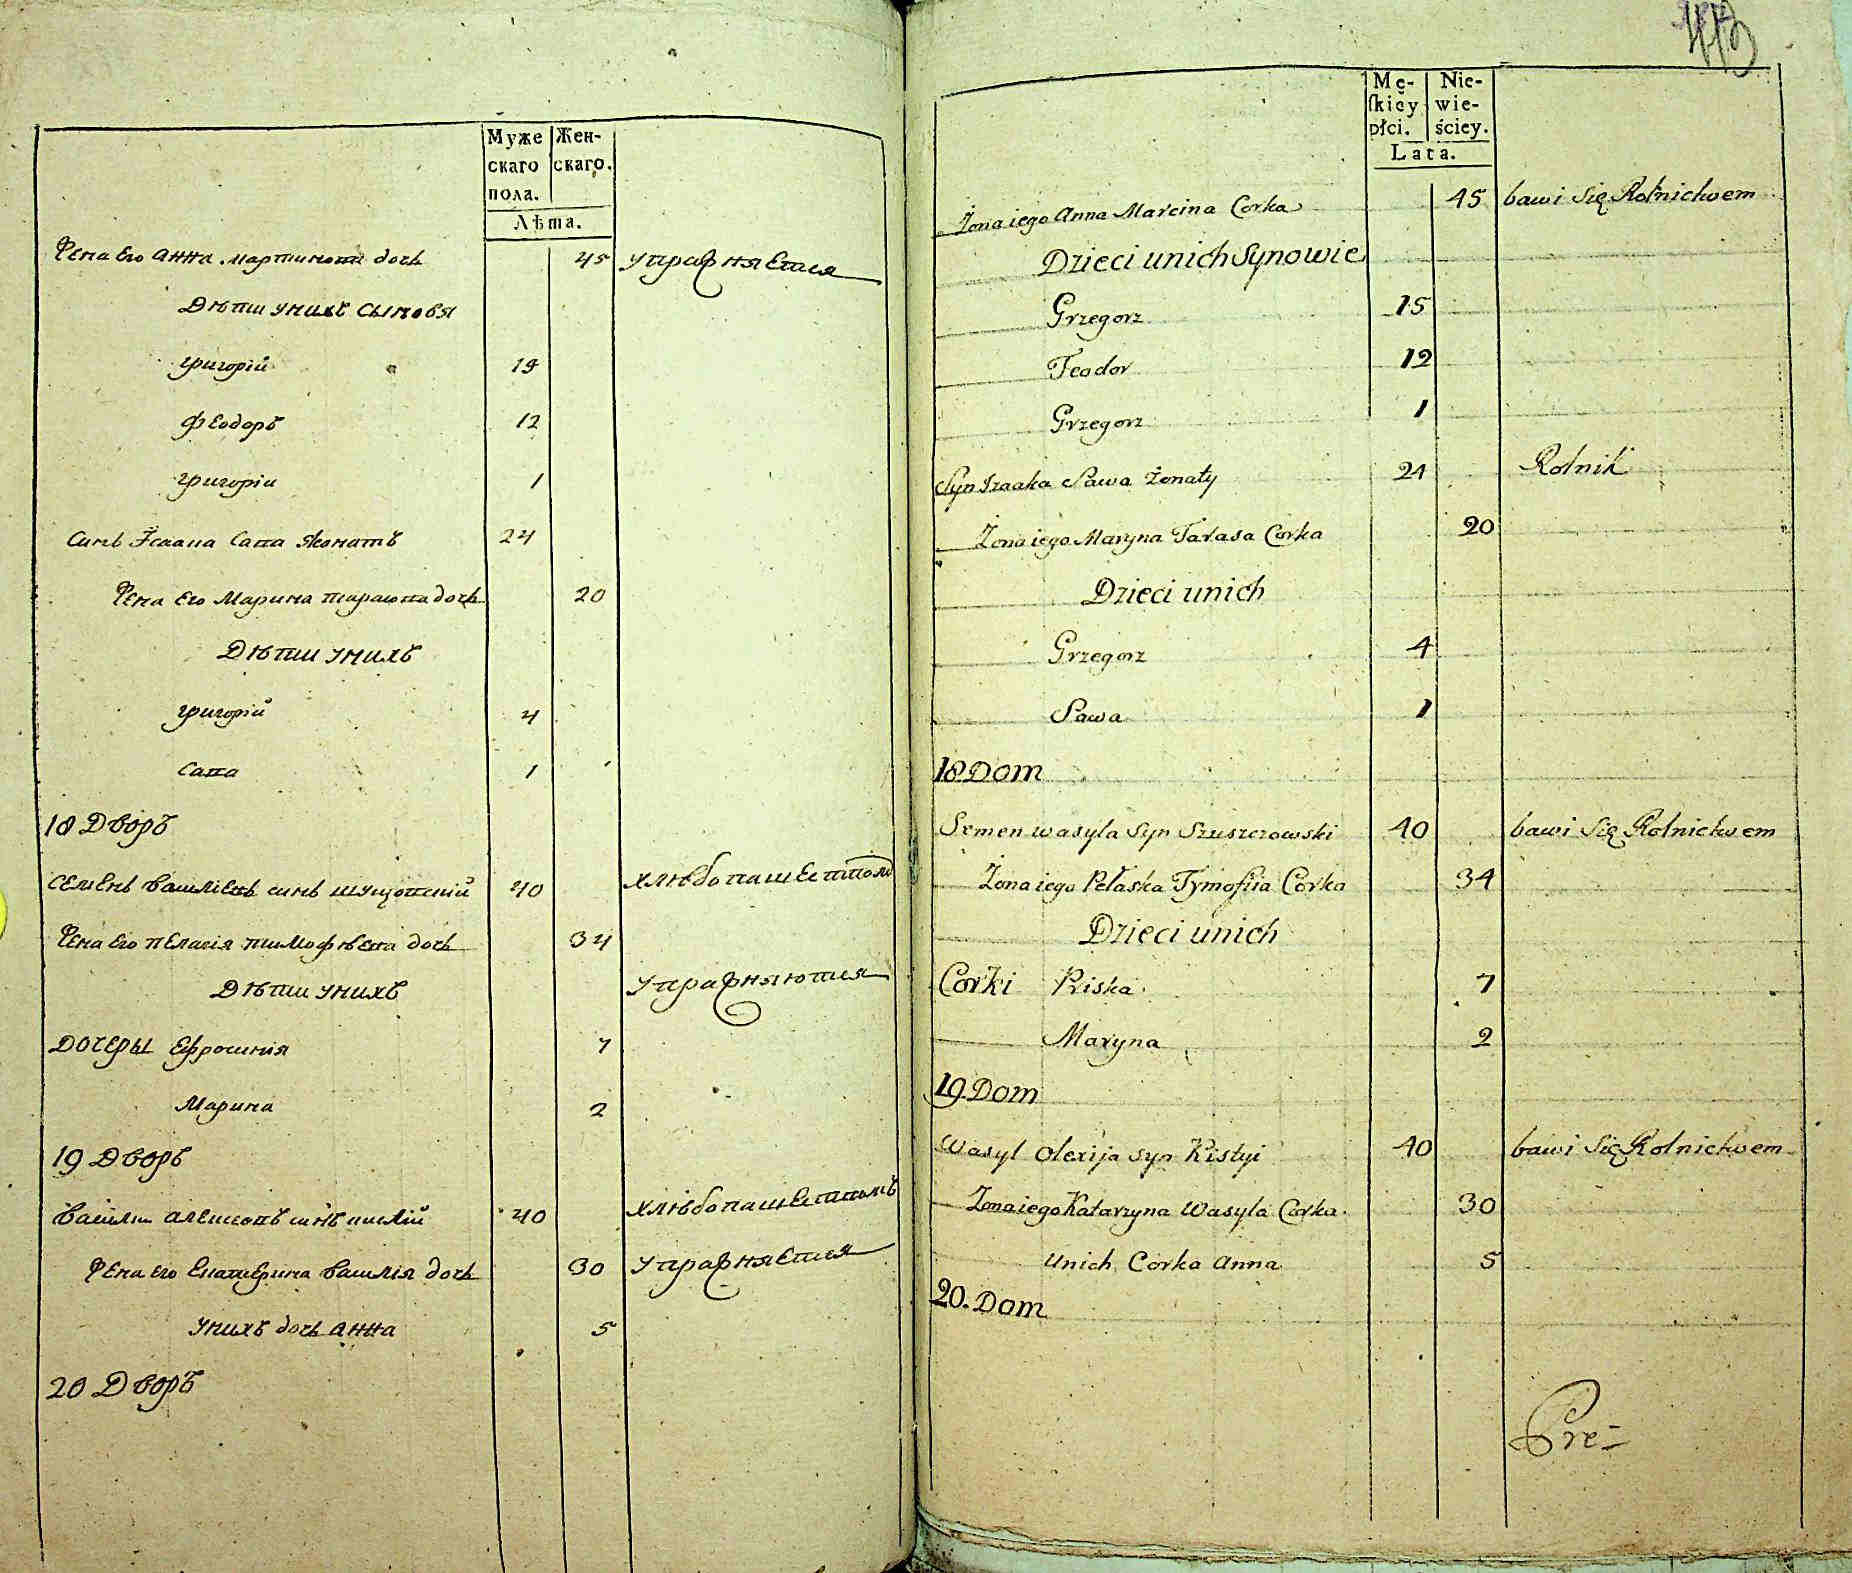 Муже Жен-
скаго скаго.
пола.
Лѣта.
Жена его Анна мартинова дочь 45 упражняется
Дѣти унихъ сыновя
григорій 15
Феодоръ 12
григорій 1
Синъ Ісаака Сава жонатъ 24
Жена его Марина тарасова дочь 20
Дѣти унихъ
григорій 4
Сава 1
18 Дворъ
Семенъ василіевъ синъ шущовскій 40 хлѣбопашеством
Жена его пелагія тимофѣева дочь 34
Дѣти унихъ упражняются
Дочеры Ефросинія 7
Марина 2
19 Дворъ
василь алексеевъ синъ кислій 40 хлѣбопашествомъ
Жена его Екатерина василія дочь 30 упражняется
унихъ дочь анна 5
20 Дворъ
113
Mę- Nie-
ſkiey wie-
płci. ściey.
Lata.
Żona iego Anna Marcina Corka 45 bawi się Rolnictwem
Dzieci unich Synowie
Grzegorz 15
Teodor 12
Grzegorz 1
Syn Izaaka Sawa żonaty 24 Rolnik
Żona iego Maryna Tarasa Corka 20
Dzieci unich
Grzegorz 4
Sawa 1
18 Dom
Semen wasyla syn Szuszczowski 40 bawi się Rolnictwem
Żona iego Pełaska Tymofiia Corka 34
Dzieci unich
Corki Priska 7
Maryna 2
19 Dom
Wasyl Olexija syn Kistyi 40 bawi się Rolnictwem
Żona iego Katarzyna Wasyla Corka 30
unich Corka Anna 5
20. Dom
Pre-